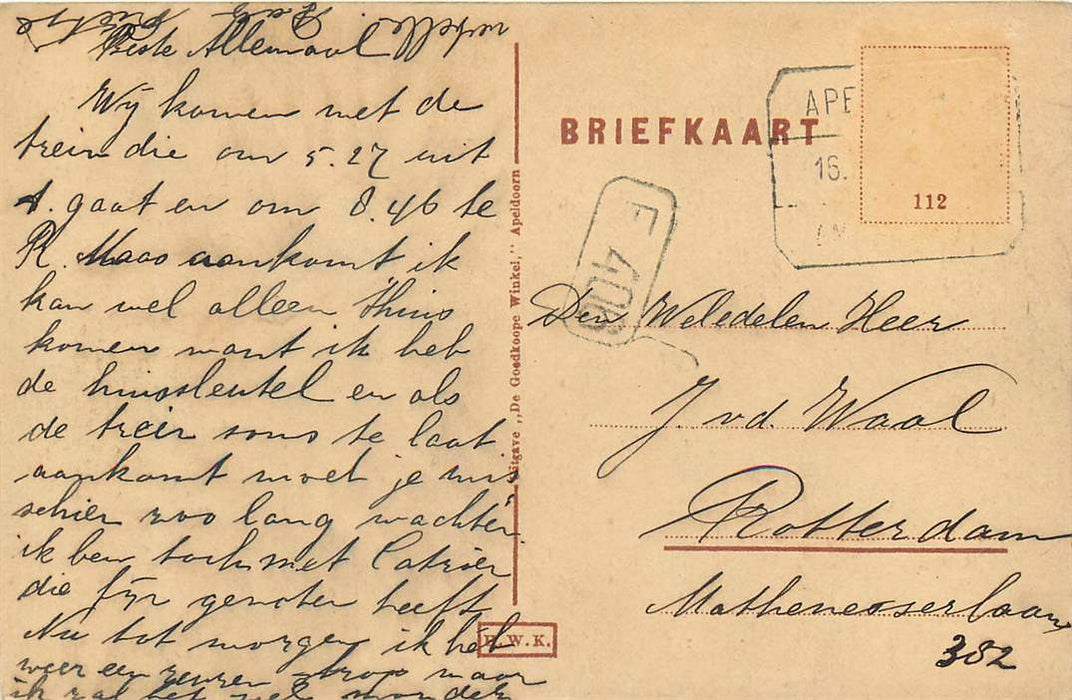 Beste Allemaal
Wij komen met de
trein die om 5.27 uit
A. gaat en om 8.46 te
R. Maas aankomt ik
kan wel alleen thuis
komen want ik heb
de huissleutel en als
de trein soms te laat
aankomt moet je mis
schien zoo lang wachten
ik ben toch met Catrien
die fijn genoten heeft
Nu tot morgen ik heb
weer een strop maar
ik zal het wel
Uitgave „De Goedkoope Winkel," Apeldoorn
R.W.K.
BRIEFKAART
APE
16.
112
F 40B
Den Weledelen Heer
J. vd. Waal
Rotterdam
Mathenesserlaan
382